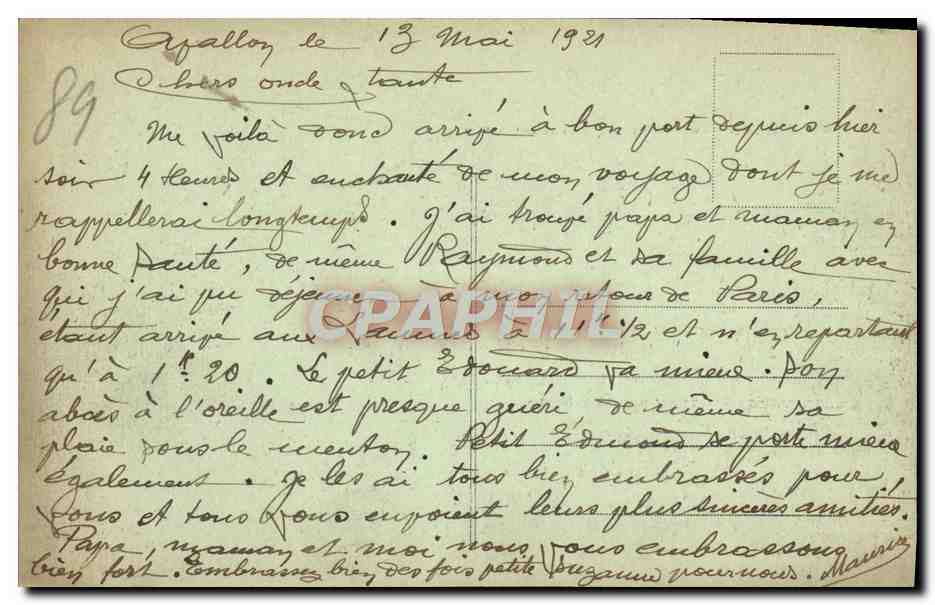 Avallon le 13 Mai 1921
89
Chers oncle & tante
Me voilà donc arrivé à bon port depuis hier
soir 4 Heures et enchanté de mon voyage dont je me
rappellerai longtemps. J'ai trouvé papa et maman en
bonne santé, de même Raymond et sa famille avec
qui j'ai pu déjeuner à mon retour de Paris,
CPAPHIL
étant arrivé aux Laumes à 11h 1/2 et n'en repartant
qu'à 1h 20. Le petit Edouard va mieux. Son
abcès à l'oreille est presque guéri, de même sa
plaie sous le menton. Petit Edmond se porte mieux
également. Je les ai tous bien embrassés pour
vous et tous vous envoient leurs plus sincères amitiés.
Papa, maman et moi nous vous embrassons
bien fort. Embrassez bien des fois petite Suzanne pour nous. Maurice